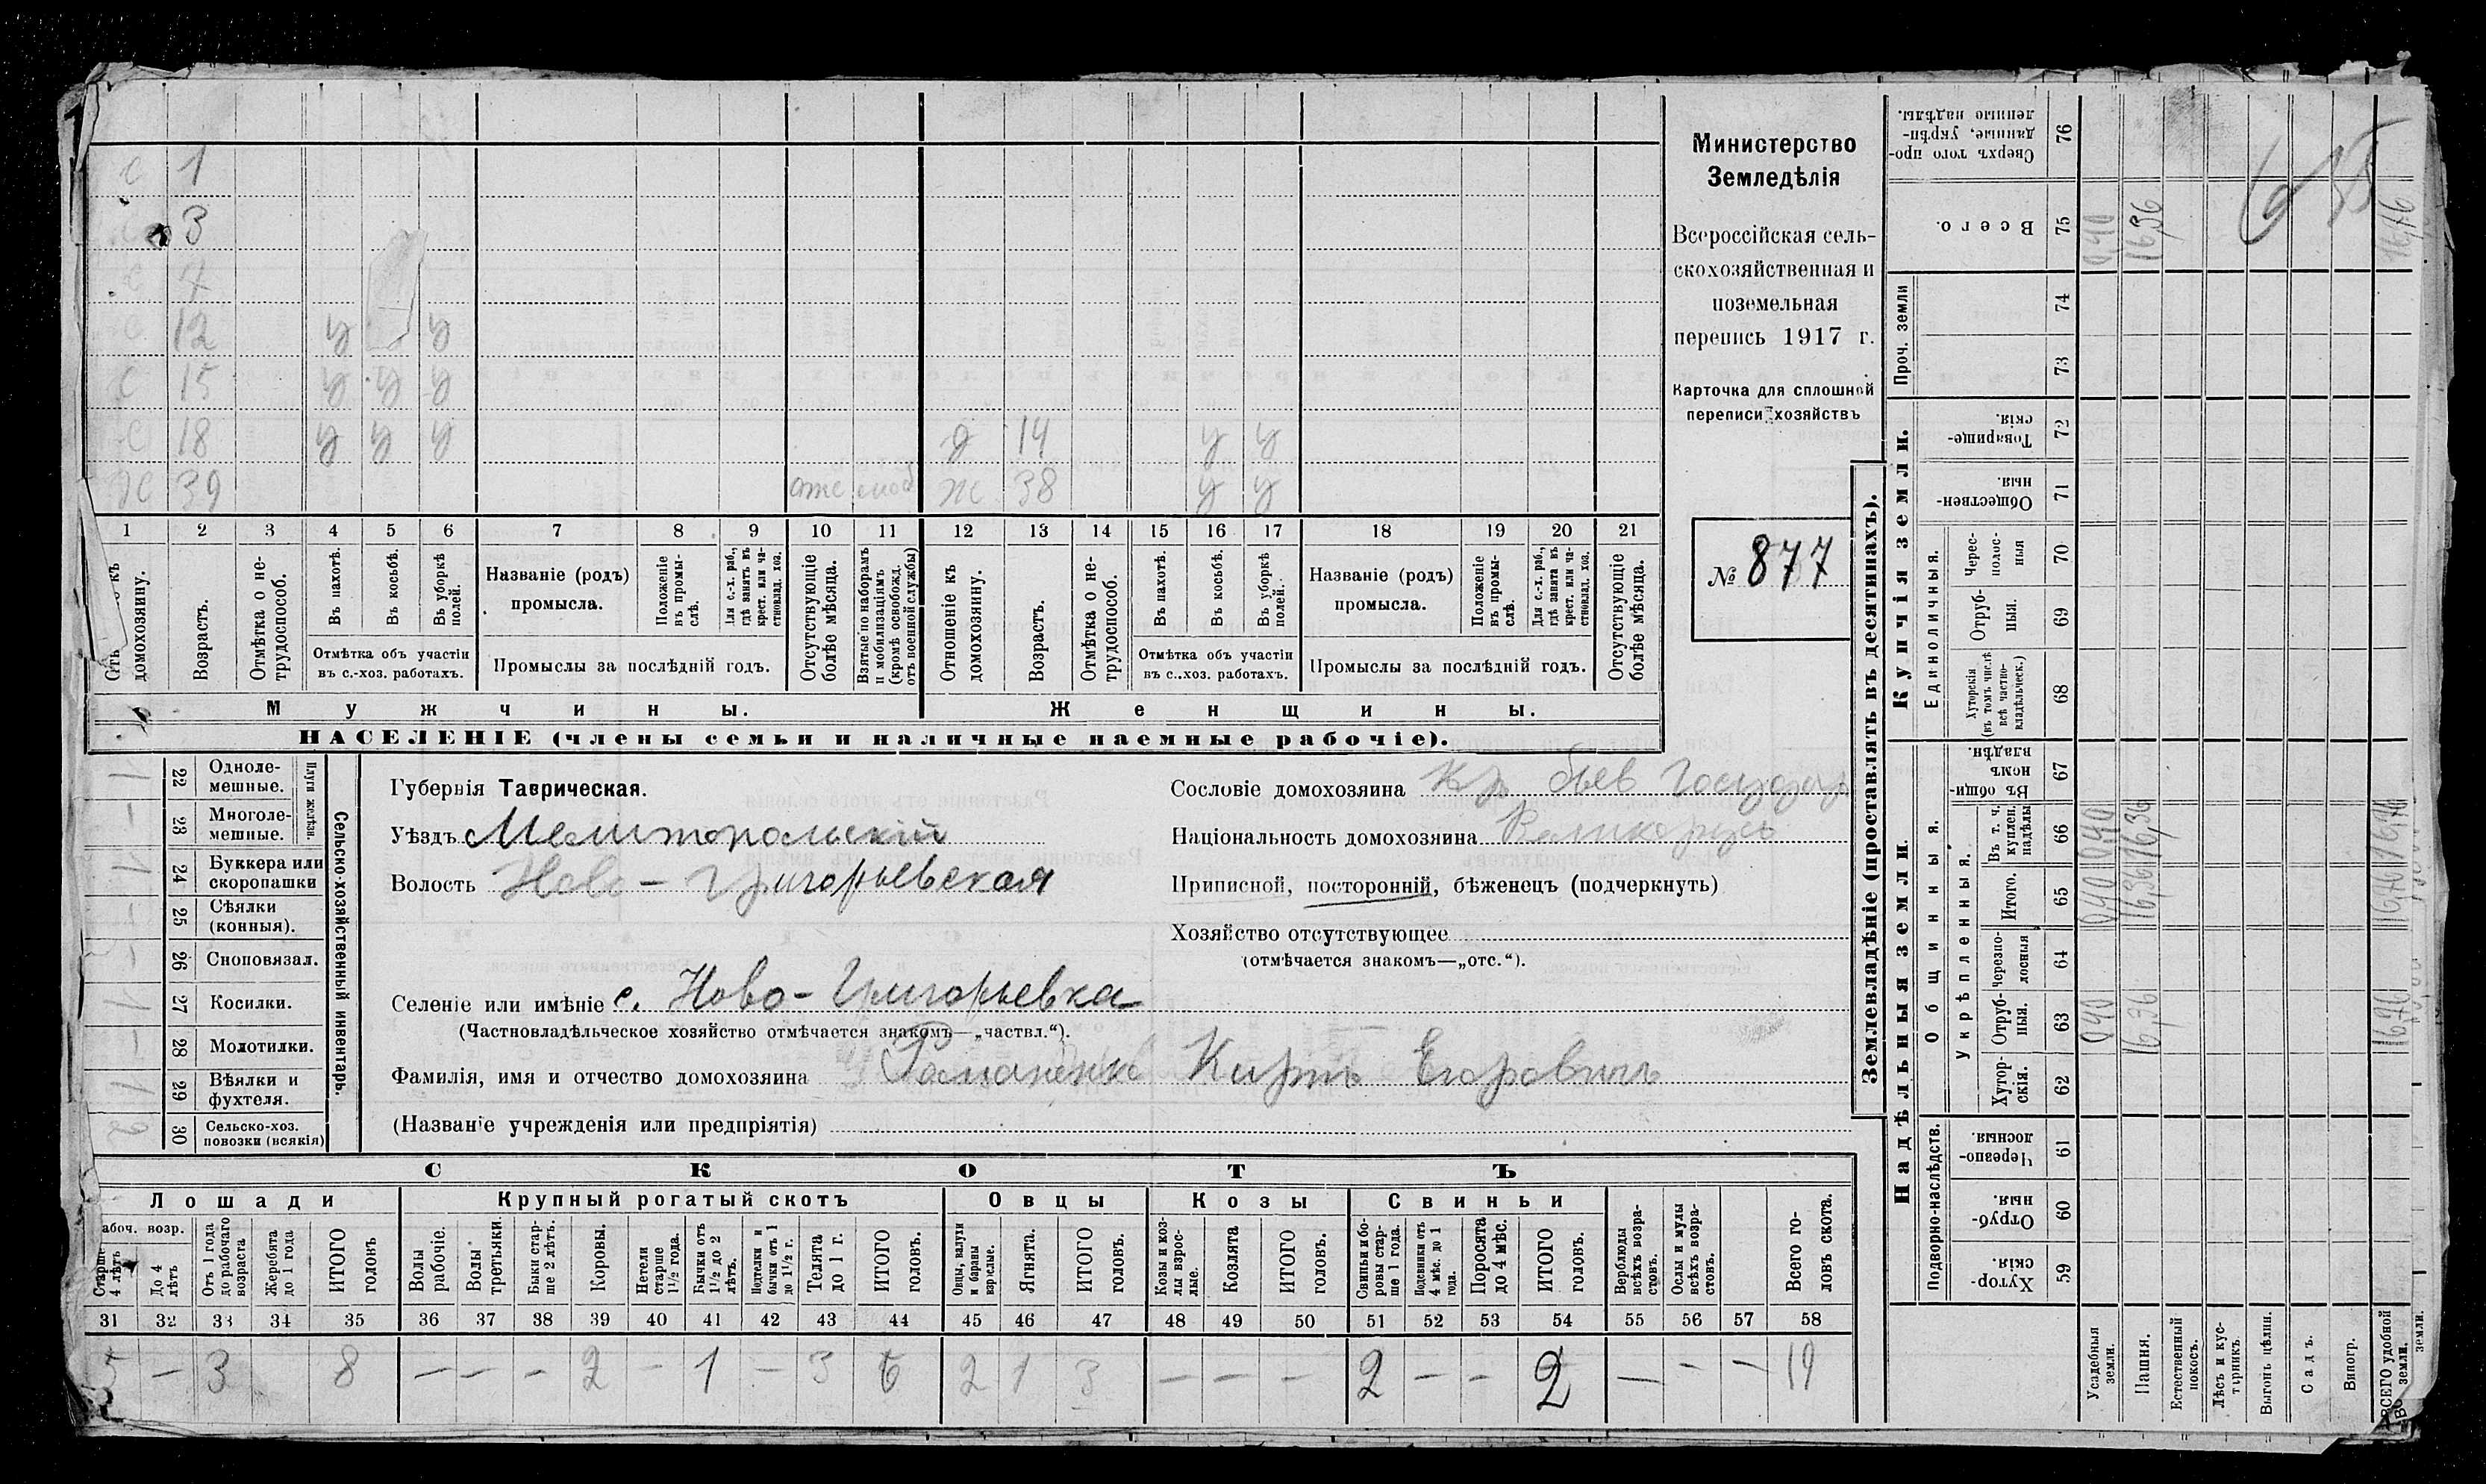 с 1
3
с 7
с 12 у у
с 15 у у у
с 18 у у у д 14 у у
х 39 ж 38 у у
1 2 3 4 5 6 7 8 9 10 11 12 13 14 15 16 17 18 19 20 21
домохозяину.
Возрастъ.
Отмѣтка о не-
трудоспособ.
Въ пахотѣ.
Въ косьбѣ.
Въ уборкѣ
полей.
Отмѣтка объ участіи
въ с.-хоз. работахъ.
Названіе (родъ)
промысла.
Положеніе
въ промы-
слѣ.
Для с.-х. раб.,
гдѣ занятъ въ
крест. или ча-
стновлад. хоз.
Промыслы за послѣдній годъ.
Отсутствующіе
болѣе мѣсяца.
Взятые по наборамъ
и мобилизаціямъ
(кромѣ освобожд.
отъ военной службы)
Отношеніе къ
домохозяину.
Возрастъ.
Отмѣтка о не-
трудоспособ.
Въ пахотѣ.
Въ косьбѣ.
Въ уборкѣ
полей.
Отмѣтка объ участіи
въ с..хоз. работахъ.
Названіе (родъ)
промысла.
Положеніе
въ промы-
слѣ.
Для с.-х. раб.,
гдѣ занята въ
крест. или ча-
стновлад. хоз.
Промыслы за послѣдній годъ.
Отсутствующіе
болѣе мѣсяца.
Мужчины.
Женщины.
НАСЕЛЕНІЕ (члены семьи и наличные наемные рабочіе).
Министерство
Земледѣлія
Всероссійская сель-
скохозяйственная и
поземельная
перепись 1917 г.
Карточка для сплошной
переписи хозяйствъ
№ 877
Сельско-хозяйственный инвентарь.
Плуги желѣзн.
1 22 Одноле-
мешные.
- 23 Многоле-
мешные.
1 24 Буккера или
скоропашки
- 25 Сѣялки
(конныя).
- 26 Сноповязал.
1 27 Косилки.
- 28 Молотилки.
1 29 Вѣялки и
фухтеля.
2 30 Сельско-хоз.
повозки (всякія)
Губернія Таврическая.
Уѣздъ Мелитопольскій
Волость Ново-Григорьевская
Селеніе или имѣніе с. Ново-Григорьевка
(Частновладѣльческое хозяйство отмѣчается знакомъ—„частвл.“).
Фамилія, имя и отчество домохозяина Романенко Кирилъ Егоровичъ
(Названіе учрежденія или предпріятія)
Сословіе домохозяина
Національность домохозяина Великорусъ
Приписной, посторонній, бѣженецъ (подчеркнуть)
Хозяйство отсутствующее
(отмѣчается знакомъ—„отс.“).
СКОТЪ
Лошади
Крупный рогатый скотъ
Овцы
Козы
Свиньи
абоч. возр.
Старше
4 лѣтъ
До 4
лѣтъ
Отъ 1 года
до рабочаго
возраста
Жеребята
до 1 года
ИТОГО
головъ
Волы
рабочіе.
Волы
третьяки.
Быки стар-
ше 2 лѣтъ.
Коровы.
Нетели
старше
1½ года.
Бычки отъ
1½ до 2
лѣтъ.
Подтелки и
бычки отъ 1
до 1½ г.
Телята
до 1 г.
ИТОГО
головъ.
Овцы, валухи
и бараны
взрослые.
Ягнята.
ИТОГО
головъ.
Козы и коз-
лы взрос-
лые.
Козлята
ИТОГО
головъ.
Свиньи и бо-
ровы стар-
ше 1 года.
Подсвинки отъ
4 мѣс. до 1
года.
Поросята
до 4 мѣс.
ИТОГО
головъ.
Верблюды
всѣхъ возра-
стовъ.
Ослы и мулы
всѣхъ возра-
стовъ.
Всего го-
ловъ скота.
31 32 33 34 35 36 37 38 39 40 41 42 43 44 45 46 47 48 49 50 51 52 53 54 55 56 57 58
5 — 3 8 — — — 2 — 1 — 3 6 2 1 3 — — — 2 — — 2 — — — 19
Землевладѣніе (проставлять въ десятинахъ).
Надѣльныя земли.
Купчія земли.
Проч. земли
Подворно-наслѣдств.
Общинныя.
Укрѣпленныя.
Единоличныя.
Сверхъ того про-
данные, укрѣп-
ленные надѣлы.
76
Всего.
75
74
73
Товарище-
скія.
72
Обществен-
ныя.
71
Черес-
полос-
ныя
70
Отруб-
ныя.
69
Хуторскія
(въ томъ числѣ
всѣ частно-
владѣльческ.)
68
Въ общин-
номъ
владѣн.
67
Въ т. ч.
куплен.
надѣлы
66
Итого.
65
Черезпо-
лосныя
64
Отруб-
ныя.
63
Хутор-
скія.
62
Черезпо-
лосныя.
61
Отруб-
ныя.
60
Хутор-
скія.
59
Усадебныя
земли.
0,40 0,40 0,40 0,40
Пашня.
16,36 16,36 16,36 16,36
Естественный
покосъ.
Лѣсъ и кус-
тарникъ.
Выгонъ цѣлин.
Садъ.
Виногр.
ВСЕГО удобной
земли.
16,76 16,76 16,76 16,76
земли.